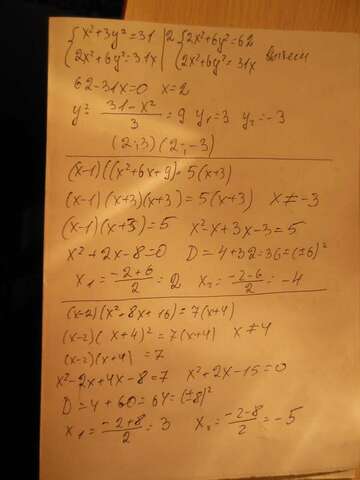 {x²+3y²=31 |2 {2x²+6y²=62
{2x²+6y²=31x {2x²+6y²=31x
62-31x=0 x=2
y²= (31-x²)/3 = 9 y₁=3 y₂=-3
(2;3) (2;-3)
(x-1)((x²+6x+9)=5(x+3)
(x-1)(x+3)(x+3)=5(x+3) x≠-3
(x-1)(x+3)=5 x²-x+3x-3=5
x²+2x-8=0 D=4+32=36=(±6)²
x₁=(-2+6)/2=2 x₂=(-2-6)/2=-4
(x-2)(x²+8x+16)=7(x+4)
(x-2)(x+4)²=7(x+4) x≠4
(x-2)(x+4)=7
x²-2x+4x-8=7 x²+2x-15=0
D=4+60=64=(±8)²
x₁=(-2+8)/2=3 x₂=(-2-8)/2=-5